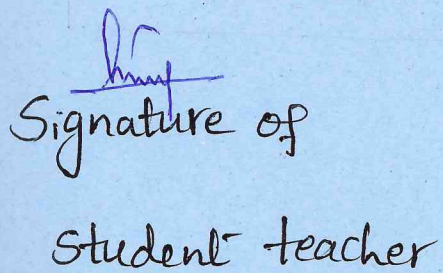 Signature of
Student teacher